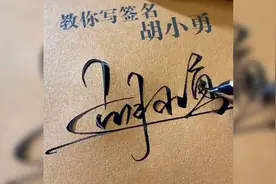 教你写签名
胡小勇
胡小勇